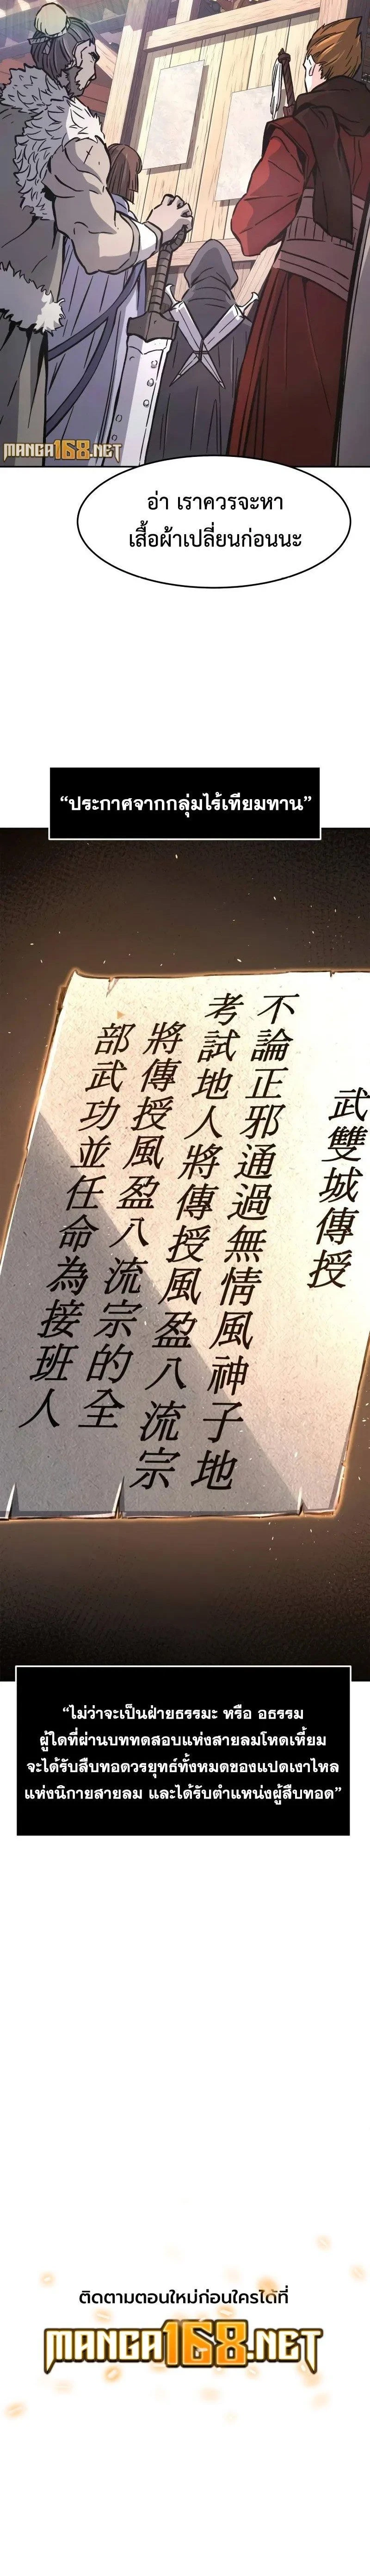 MANGA168.NET
อ่า เราควรจะหา
เสื้อผ้าเปลี่ยนก่อนนะ
“ประกาศจากกลุ่มไร้เทียมทาน”
武雙城傳授
不論正邪通過無情風神子地
考試地人將傳授風盈八流宗
將傳授風盈八流宗的全
部武功並任命為接班人
“ไม่ว่าจะเป็นฝ่ายธรรมะ หรือ อธรรม
ผู้ใดที่ผ่านบททดสอบแห่งสายลมโหดเหี้ยม
จะได้รับสืบทอดวรยุทธ์ทั้งหมดของแปดเงาไหล
แห่งนิกายสายลม และได้รับตำแหน่งผู้สืบทอด”
ติดตามตอนใหม่ก่อนใครได้ที่
MANGA168.NET